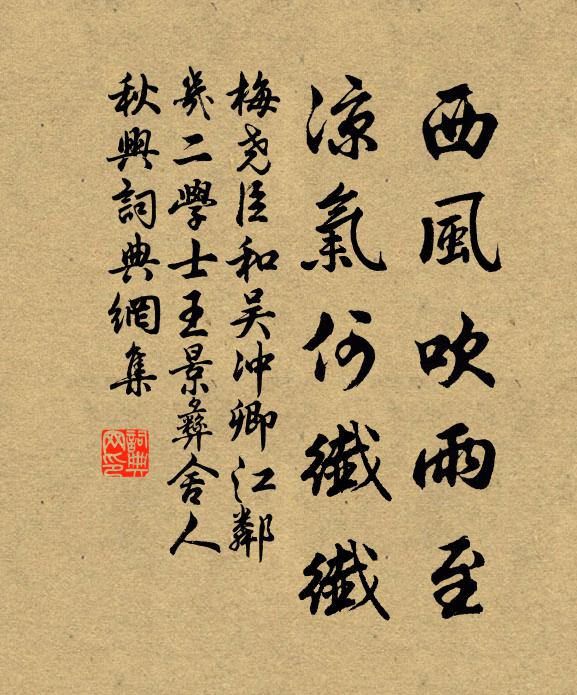 西風吹雨至
涼氣何纖纖
梅堯臣和吴冲卿江鄰
幾二學士王景彝舍人
秋興詞典網集
詞典网印